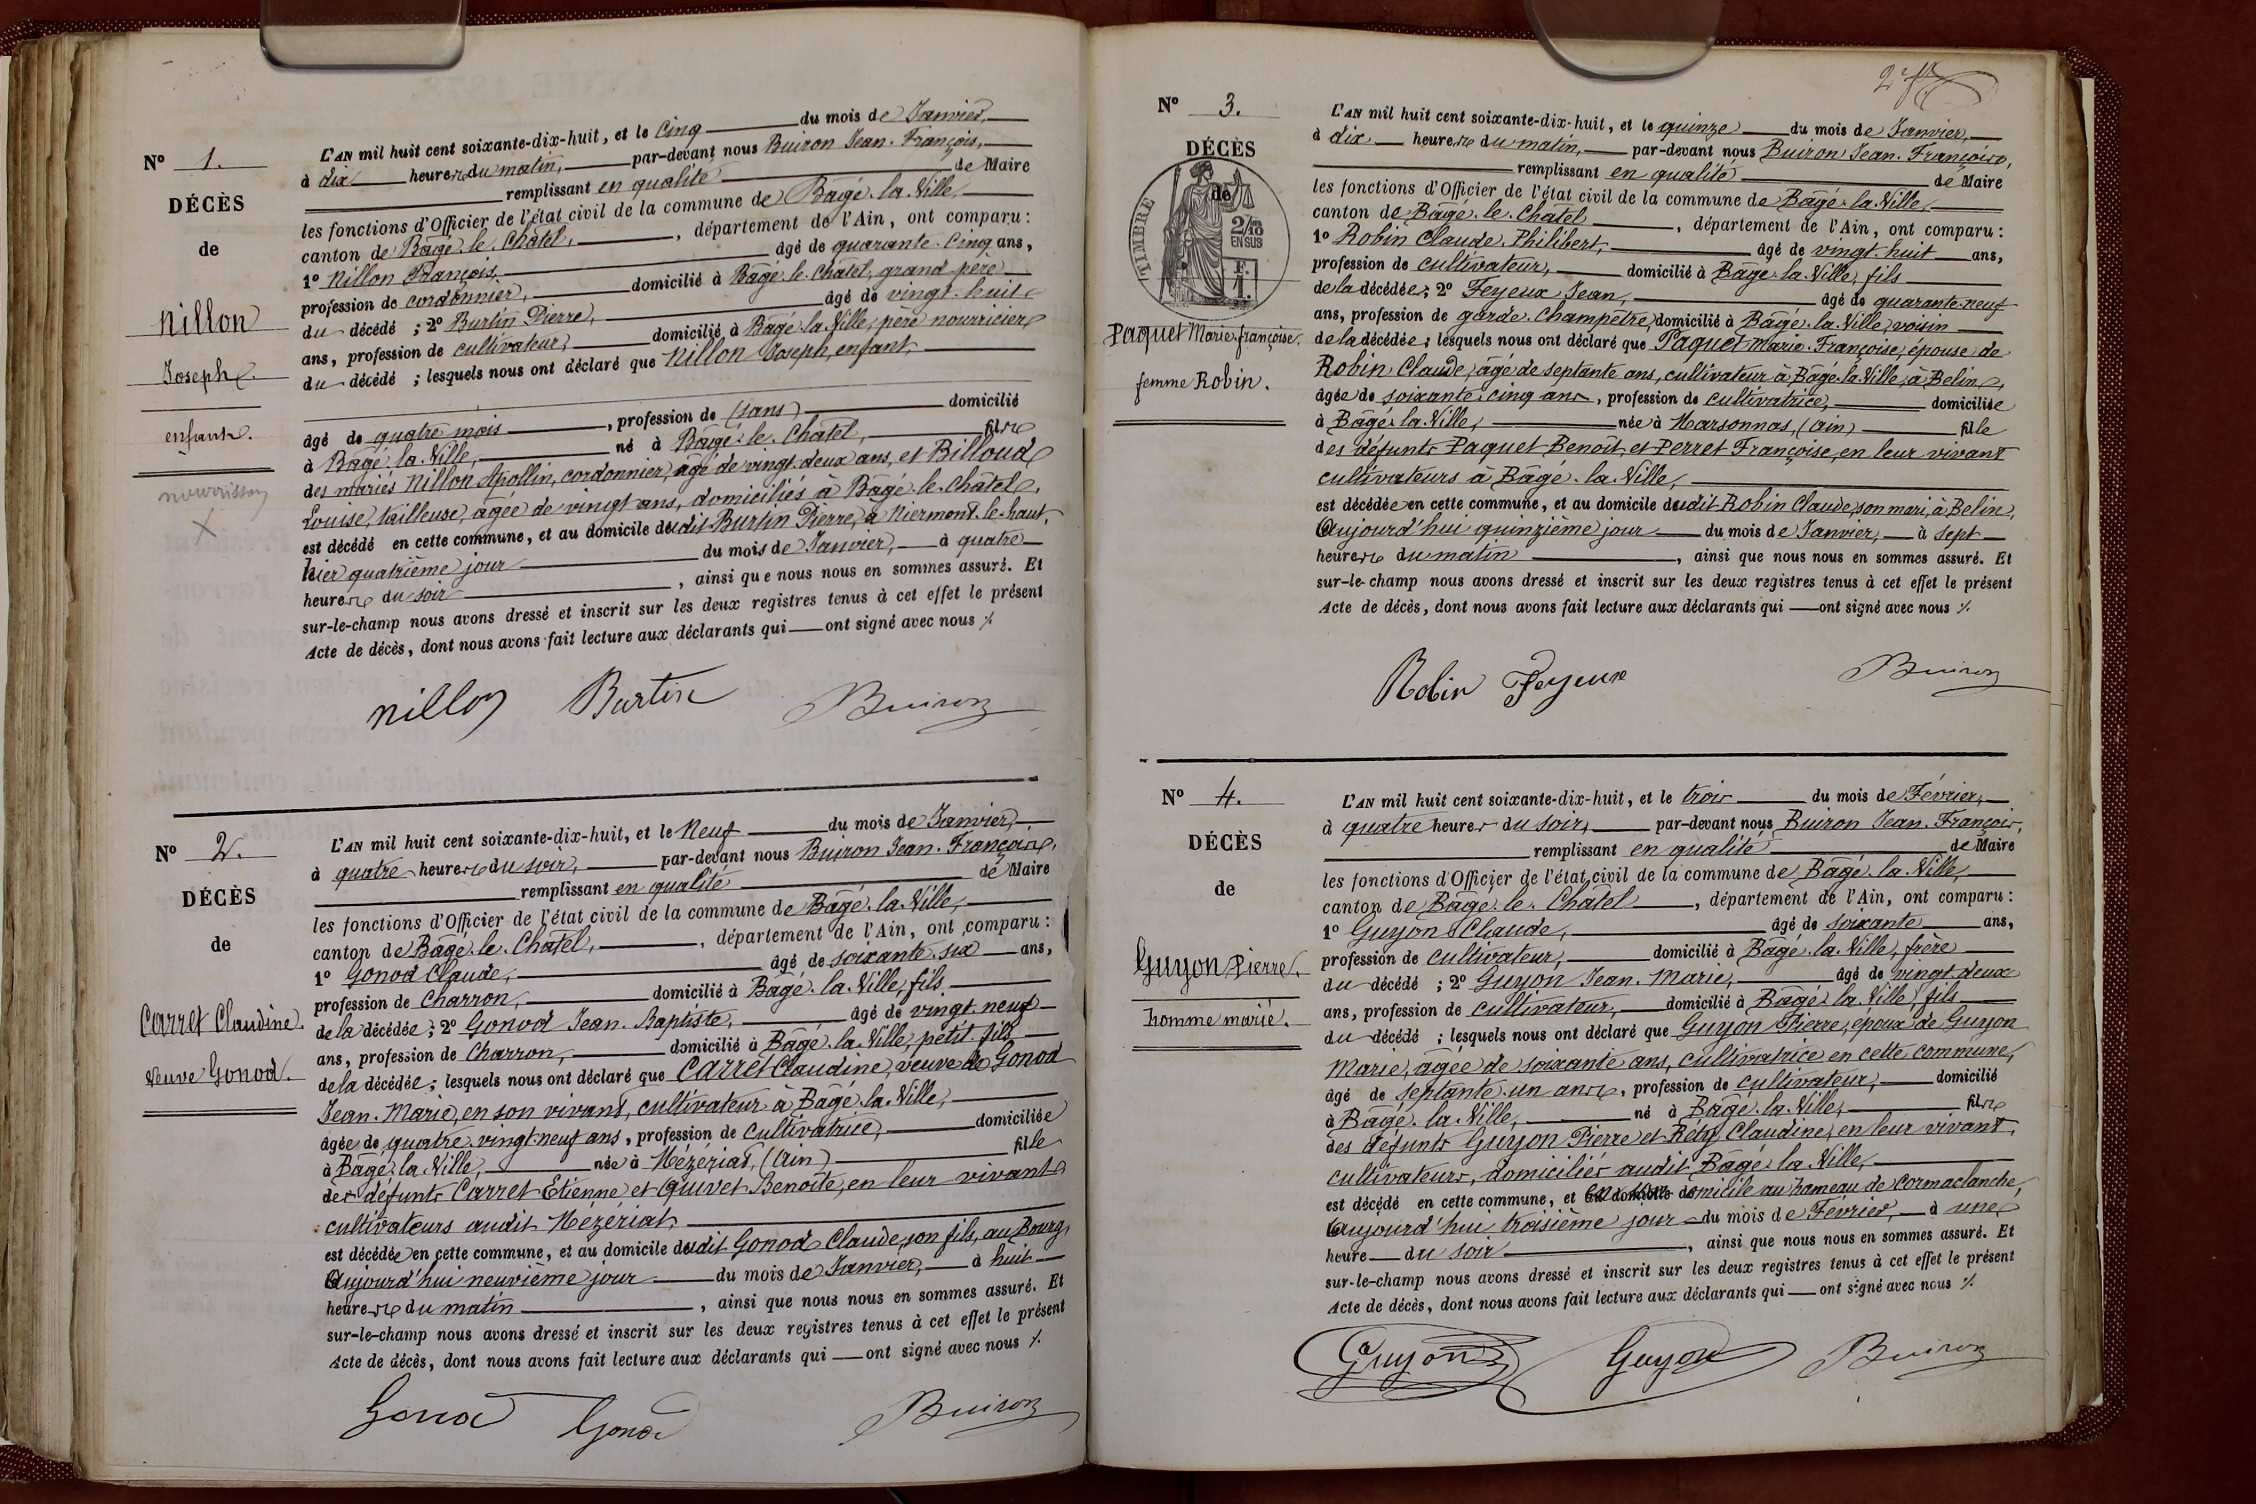 N° 1.
DÉCÈS
de
Nillon
Joseph
enfant.
nourrisson
L'AN mil huit cent soixante-dix-huit, et le Cinq du mois de Janvier,
à dix heures du matin, par-devant nous Buiron Jean-François,
remplissant en qualité de Maire
les fonctions d'Officier de l'état civil de la commune de Bâgé-la-Ville,
canton de Bâgé-le-Châtel, département de l'Ain, ont comparu :
1° Nillon François, âgé de quarante-cinq ans,
profession de cordonnier, domicilié à Bâgé-le-Châtel, grand-père
du décédé ; 2° Burtin Pierre, âgé de vingt-huit
ans, profession de cultivateur, domicilié à Bâgé-la-Ville, père nourricier
du décédé ; lesquels nous ont déclaré que Nillon Joseph, enfant,
âgé de quatre mois, profession de (sans) domicilié
à Bâgé-la-Ville, né à Bâgé-le-Châtel, fils
des mariés Nillon Apollin, cordonnier, âgé de vingt-deux ans, et Billoud
Louise, tailleuse, âgée de vingt ans, domiciliés à Bâgé-le-Châtel,
est décédé en cette commune, et au domicile dudit Burtin Pierre, à Niermont-le-haut,
hier quatrième jour du mois de Janvier, à quatre
heures du soir, ainsi que nous nous en sommes assuré. Et
sur-le-champ nous avons dressé et inscrit sur les deux registres tenus à cet effet le présent
Acte de décès, dont nous avons fait lecture aux déclarants qui ont signé avec nous ⁒
Nillon Burtin Buiron
N° 2.
DÉCÈS
de
Carret Claudine.
Veuve Gonod.
L'AN mil huit cent soixante-dix-huit, et le Neuf du mois de Janvier,
à quatre heures du soir, par-devant nous Buiron Jean-François,
remplissant en qualité de Maire
les fonctions d'Officier de l'état civil de la commune de Bâgé-la-Ville,
canton de Bâgé-le-Châtel, département de l'Ain, ont comparu :
1° Gonod Claude, âgé de soixante-six ans,
profession de Charron, domicilié à Bâgé-la-Ville, fils
de la décédée ; 2° Gonod Jean-Baptiste, âgé de vingt-neuf
ans, profession de Charron, domicilié à Bâgé-la-Ville, petit-fils
de la décédée ; lesquels nous ont déclaré que Carret Claudine, veuve de Gonod
Jean-Marie, en son vivant, cultivateur à Bâgé-la-Ville,
âgée de quatre-vingt-neuf ans, profession de cultivatrice, domiciliée
à Bâgé-la-Ville, née à Mézériat, (Ain) fille
des défunts Carret Etienne et Quivet Benoite, en leur vivant
cultivateurs audit Mézériat,
est décédée en cette commune, et au domicile dudit Gonod Claude, son fils, au Bourg,
Aujourd'hui neuvième jour du mois de Janvier, à huit
heures du matin, ainsi que nous nous en sommes assuré. Et
sur-le-champ nous avons dressé et inscrit sur les deux registres tenus à cet effet le présent
Acte de décès, dont nous avons fait lecture aux déclarants qui ont signé avec nous ⁒
Gonod Gonod Buiron
N° 3.
DÉCÈS
de
TIMBRE
2/10
EN SUS
Paquet Marie-françoise.
femme Robin.
L'AN mil huit cent soixante-dix-huit, et le quinze du mois de Janvier,
à dix heures du matin, par-devant nous Buiron Jean-François,
remplissant en qualité de Maire
les fonctions d'Officier de l'état civil de la commune de Bâgé-la-Ville,
canton de Bâgé-le-Châtel, département de l'Ain, ont comparu :
1° Robin Claude-Philibert, âgé de vingt-huit ans,
profession de cultivateur, domicilié à Bâgé-la-Ville, fils
de la décédée ; 2° Feyeux Jean, âgé de quarante-neuf
ans, profession de garde-Champêtre, domicilié à Bâgé-la-Ville, voisin
de la décédée ; lesquels nous ont déclaré que Paquet Marie-Françoise, épouse de
Robin Claude, âgé de septante ans, cultivateur à Bâgé-la-Ville, à Belin,
âgée de soixante-cinq ans, profession de cultivatrice, domiciliée
à Bâgé-la-Ville, née à Marsonnas, (Ain) fille
des défunts Paquet Benoit, et Perret Françoise, en leur vivant
cultivateurs à Bâgé-la-Ville,
est décédée en cette commune, et au domicile dudit Robin Claude, son mari, à Belin,
Aujourd'hui quinzième jour du mois de Janvier, à sept
heures du matin, ainsi que nous nous en sommes assuré. Et
sur-le-champ nous avons dressé et inscrit sur les deux registres tenus à cet effet le présent
Acte de décès, dont nous avons fait lecture aux déclarants qui ont signé avec nous ⁒
Robin Feyeux Buiron
N° 4.
DÉCÈS
de
Guyon Pierre.
homme marié.
L'AN mil huit cent soixante-dix-huit, et le trois du mois de Février,
à quatre heures du soir, par-devant nous Buiron Jean-François,
remplissant en qualité de Maire
les fonctions d'Officier de l'état civil de la commune de Bâgé-la-Ville,
canton de Bâgé-le-Châtel, département de l'Ain, ont comparu :
1° Guyon Claude, âgé de soixante ans,
profession de cultivateur, domicilié à Bâgé-la-Ville, frère
du décédé ; 2° Guyon Jean-Marie, âgé de vingt-deux
ans, profession de cultivateur, domicilié à Bâgé-la-Ville, fils
du décédé ; lesquels nous ont déclaré que Guyon Pierre, époux de Guyon
Marie, âgée de soixante ans, cultivatrice en cette commune,
âgé de septante-un ans, profession de cultivateur, domicilié
à Bâgé-la-Ville, né à Bâgé-la-Ville, fils
des défunts Guyon Pierre et Réty Claudine, en leur vivant,
cultivateurs, domiciliés audit Bâgé-la-Ville,
est décédé en cette commune, et domicile au hameau de Cormaclanche,
Aujourd'hui troisième jour du mois de Février, à une
heure du soir, ainsi que nous nous en sommes assuré. Et
sur-le-champ nous avons dressé et inscrit sur les deux registres tenus à cet effet le présent
Acte de décès, dont nous avons fait lecture aux déclarants qui ont signé avec nous ⁒
Guyon Guyon Buiron